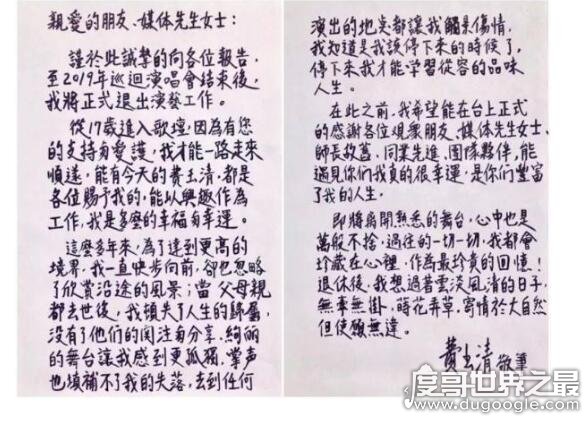 親愛的朋友、媒体先生女士：
謹於此誠摯的向各位報告，
至2019年巡迴演唱會結束後，
我將正式退出演藝工作。
從17歲進入歌壇，因為有您
的支持与愛護，我才能一路走來
順遂，能有今天的費玉清，都是
各位賜予我的，能以興趣作為
工作，我是多麼的幸福与幸運。
這麼多年來，為了達到更高的
境界，我一直快步向前，卻也忽略
了欣賞沿途的風景；當父母親
都去世後，我頓失了人生的歸屬，
沒有了他們的関注与分享，絢麗
的舞台讓我感到更孤獨，掌声
也填補不了我的失落，去到任何
演出的地点都讓我觸景傷情，
我知道是我該停下來的時候了，
停下來我才能学習從容的品味
人生。
在此之前，我希望能在台上正式
的感謝各位观衆朋友、媒体先生女士、
師長故舊、同業先進、團隊夥伴，能
遇見你們我真的很幸運，是你們豐富
了我的人生。
即將離開熟悉的舞台，心中也是
萬般不捨，過往的一切一切，我都會
珍藏在心裡，作為最珍貴的回憶！
退休後，我想過著雲淡風清的日子，
無牽無掛，蒔花弄草，寄情於大自然
但使願無違。
費玉清 敬筆
度哥世界之最
www.dugoogle.com